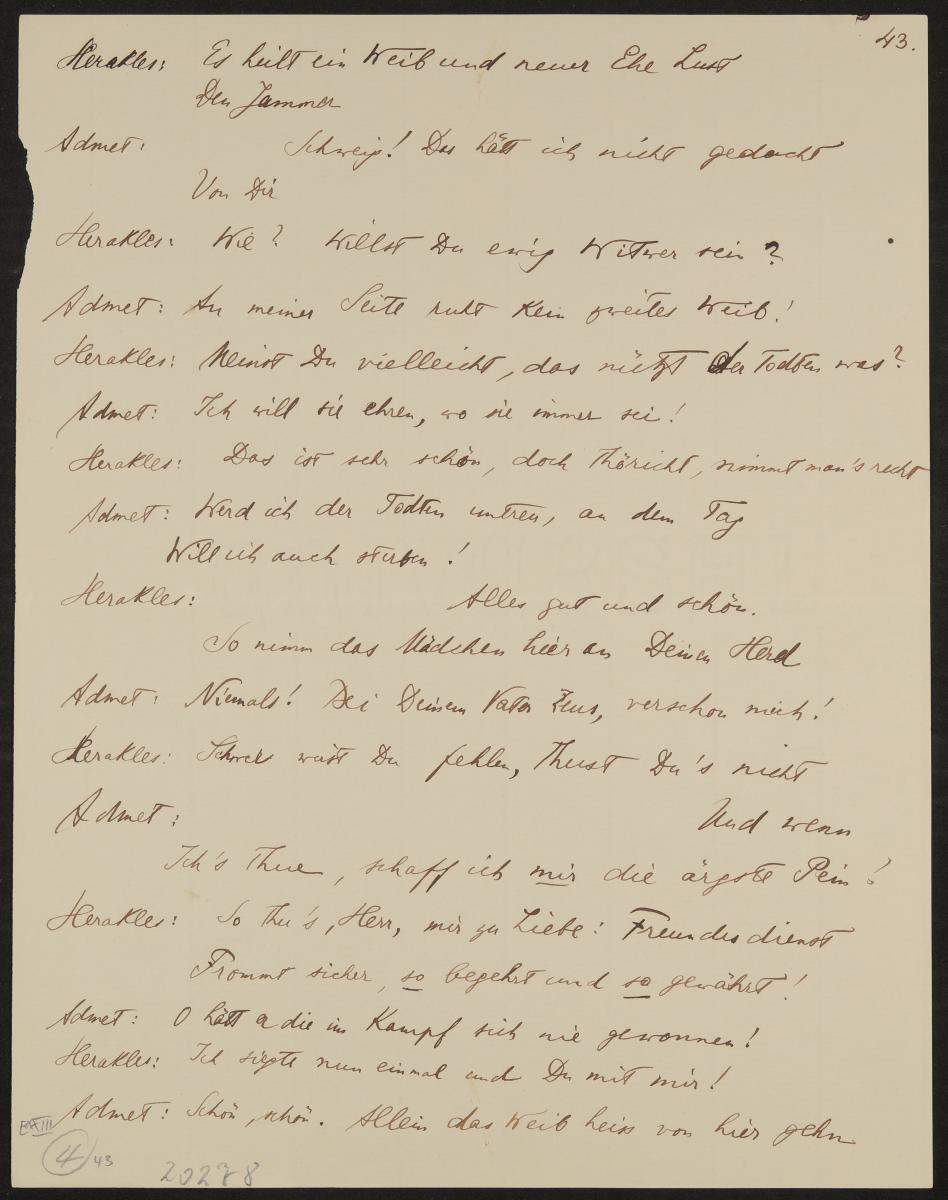 43.
Herakles: Es heilt ein Weib und neuer Ehe Lust
Den Jammer
Admet: Schweig! Das hätt ich nicht gedacht
Von Dir
Herakles: Wie? Willst Du ewig Witwer sein?
Admet: An meiner Seite ruht kein zweites Weib!
Herakles: Meinst Du vielleicht, das nützt der Todten was?
Admet: Ich will sie ehren, wo sie immer sei!
Herakles: Das ist sehr schön, doch thöricht, nimmt man's recht
Admet: Werd ich der Todten untreu, an dem Tag
Will ich auch sterben!
Herakles: Alles gut und schön.
So nimm das Mädchen hier an Deinen Herd
Admet: Niemals! Bei Deinem Vater Zeus, verschon mich!
Herakles: Schwer wirst Du fehlen, Thust Du's nicht
Admet: Und wenn
Ich's Thue, schaff ich mir die ärgste Pein!
Herakles: So thu's, Herr, mir zu Liebe: Freundesdienst
Frommt sicher, so begehrt und so gewährt!
Admet: O hätt er die im Kampf sich nie gewonnen!
Herakles: Ich siegte nun einmal und Du mit mir!
Admet: Schön, schön. Allein das Weib heiss von hier gehn
4 43
20278